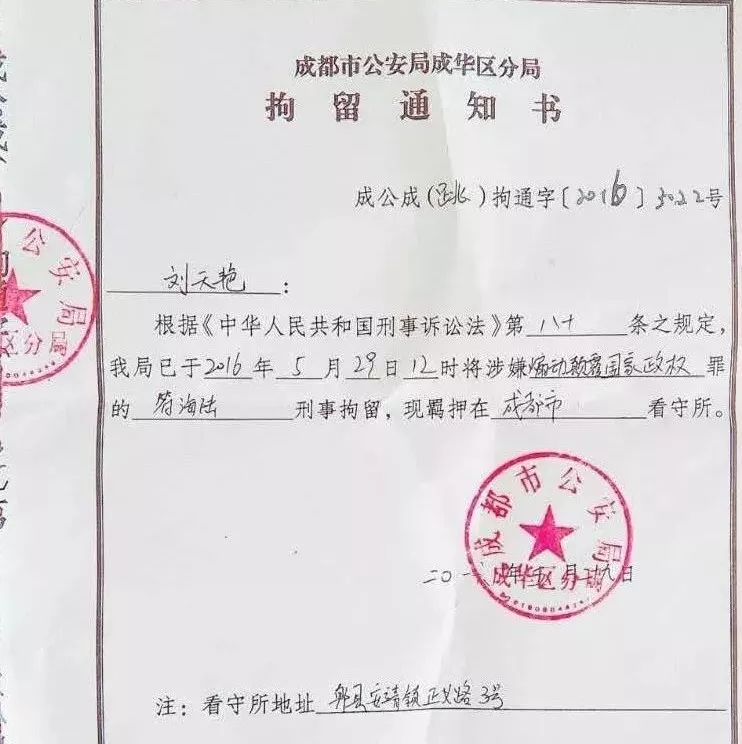 成都市公安局成华区分局
拘留通知书
成公成(跳)拘通字〔2016〕3022号
刘天艳:
根据《中华人民共和国刑事诉讼法》第八十条之规定,
我局已于2016年5月29日12时将涉嫌煽动颠覆国家政权罪
的符海陆刑事拘留,现羁押在成都市看守所。
成都市公安局
成华区分局
二〇一六年五月廿九日
注:看守所地址郫县安靖镇正义路3号
公安局
区分局